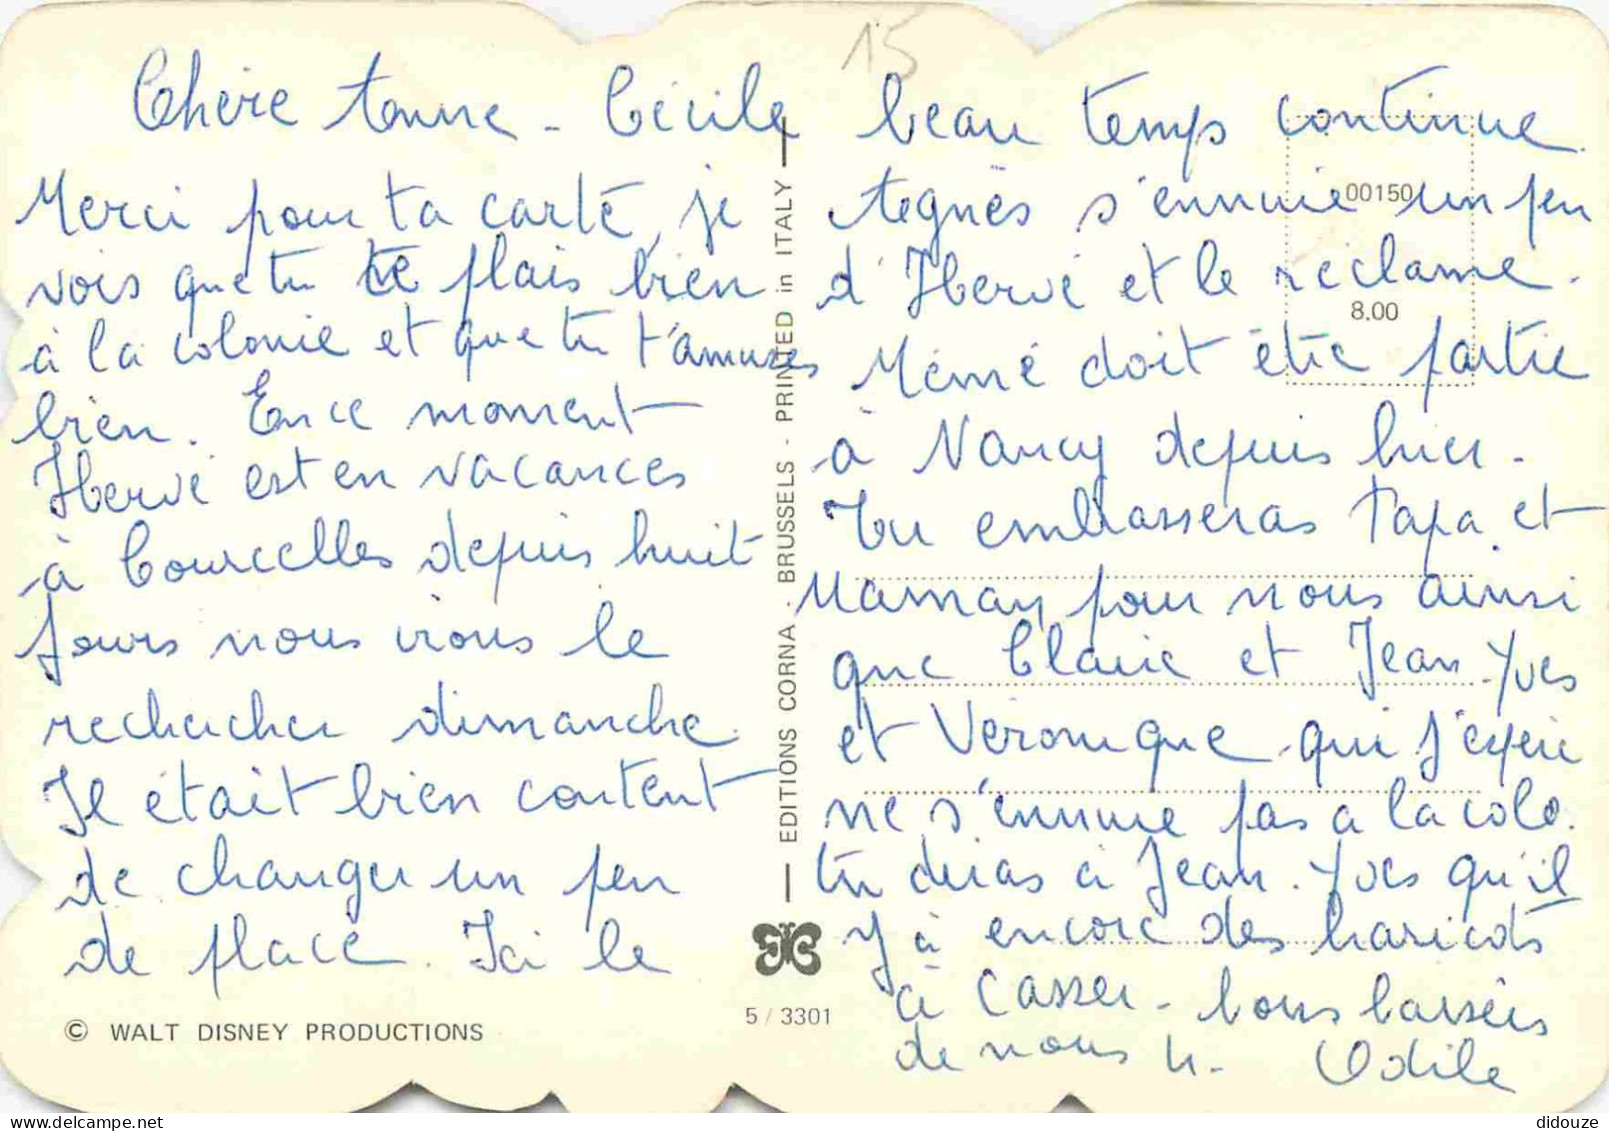 15
Chère Anne - Cécile
Merci pour ta carte, je
vois que tu te plais bien
à la colonie et que tu t'amuses
bien. En ce moment
Hervé est en vacances
à Courcelles depuis huit
jours nous irons le
rechercher dimanche.
Il était bien content
de changer un peu
de place. Ici le
© WALT DISNEY PRODUCTIONS
EDITIONS CORNA - BRUSSELS - PRINTED in ITALY
5 / 3301
00150
8.00
beau temps continue.
Agnès s'ennuie un peu
d'Hervé et le réclame.
Mémé doit être partie
à Nancy depuis hier.
Tu embrasseras Papa et
Maman pour nous ainsi
que Claire et Jean-Yves
et Véronique qui j'espère
ne s'ennuie pas a la colo.
tu diras à Jean-Yves qu'il
y à encore des haricots
à casser - bons baisers
de nous 4. Odile
didouze